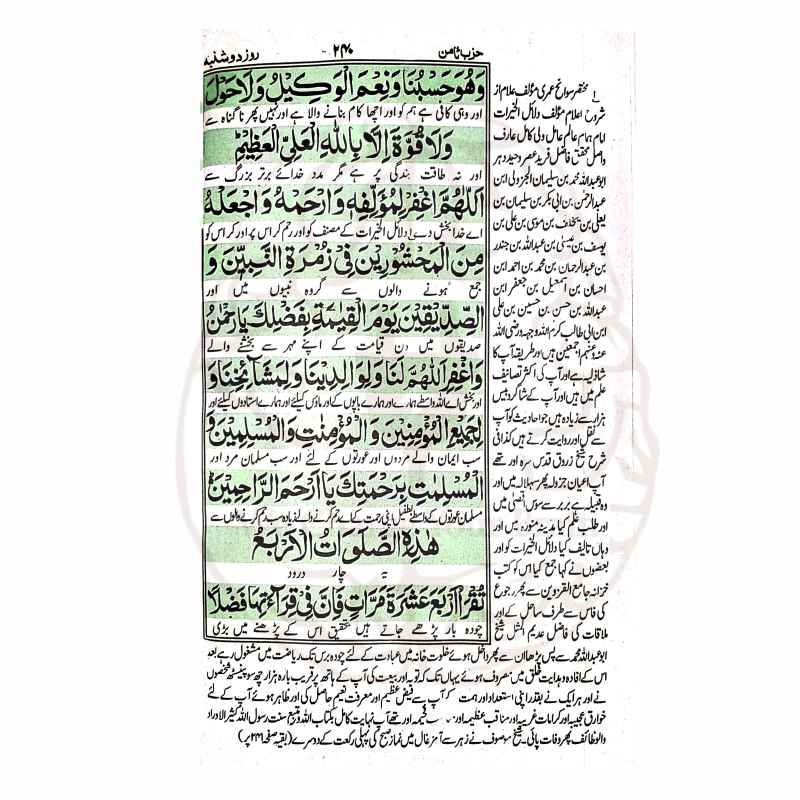 حزب ثامن
۲۴۰
روز دو شنبہ
وَهُوَ حَسْبُنَا وَنِعْمَ الْوَكِيْلُ وَلَا حَوْلَ
اور وہی کافی ہے ہم کو اور اچھا کام بنانے والا ہے اور نہیں پھرنا گناہ سے
وَلَا قُوَّةَ اِلَّا بِاللّٰهِ الْعَلِيِّ الْعَظِيْمِ
اور نہ طاقت بندگی پر ہے مگر مدد خدائے برتر بزرگ سے
اَللّٰهُمَّ اغْفِرْ لِمُؤَلِّفِهٖ وَارْحَمْهُ وَاجْعَلْهُ
اے خدا بخش دے دلائل الخیرات کے مصنف کو اور رحم کر اس پر اور کر اس کو
مِنَ الْمَحْشُوْرِيْنَ فِيْ زُمْرَةِ النَّبِيّٖنَ وَ
جمع ہونے والوں سے گروہ نبیوں میں اور
الصِّدِّيْقِيْنَ يَوْمَ الْقِيٰمَةِ بِفَضْلِكَ يَا رَحْمٰنُ
صدیقوں میں دن قیامت کے اپنے مہر سے بخشنے والے
وَاغْفِرِ اللّٰهُمَّ لَنَا وَلِوَالِدِيْنَا وَلِمَشَآئِخِنَا وَ
اور بخش اے اللہ واسطے ہمارے اور ہمارے باپوں کے اور ماؤں کیلئے اور ہمارے استادوں کیلئے اور
لِجَمِيْعِ الْمُؤْمِنِيْنَ وَالْمُؤْمِنٰتِ وَالْمُسْلِمِيْنَ وَ
سب ایمان والے مردوں اور عورتوں کے لئے اور سب مسلمان مرد اور
الْمُسْلِمٰتِ بِرَحْمَتِكَ يَا اَرْحَمَ الرَّاحِمِيْنَ
مسلمان عورتوں کے واسطے بطفیل اپنی رحمت کے اے رحم کرنے والے زیادہ سب رحم کرنے والوں سے
هٰذِهِ الصَّلَوَاتُ الْاَرْبَعُ
یہ چار درود
تُقْرَأُ اَرْبَعَ عَشْرَةَ مَرَّاتٍ فَاِنَّ فِيْ قِرَآءَتِهَا فَضْلًا
چودہ بار پڑھے جاتے ہیں بتحقیق اس کے پڑھنے میں بڑی
مختصر سوانح عمری مؤلف علام از
شروح اعلام مؤلف دلائل الخیرات
امام ہمام عالم عامل ولی کامل عارف
واصل محقق فاضل فرید عصر وحید دہر
ابو عبداللہ محمد بن سلیمان الجزولی ابن
عبدالرحمٰن بن ابی بکر بن سلیمان بن
یعلی بن یخلف بن موسی بن علی بن
یوسف بن عیسٰی بن عبداللہ بن جندر
بن عبدالرحمان بن محمد بن احمد ابن
احسان بن اسمعیل بن جعفر ابن
عبداللہ بن حسن بن حسین بن علی
ابن ابی طالب کرم اللہ وجہہ ورضی اللہ
عنہ وعنہم اجمعین ہیں اور طریقہ آپ کا
شاذلیہ ہے اور آپ کی اکثر تصانیف
علم میں ہیں اور آپ کے شاگرد بیس
ہزار سے زیادہ ہیں جو احادیث کو آپ
سے نقل اور روایت کرتے ہیں کذا فی
شرح شیخ زروق قدس سرہ اور تھے
آپ اعیان جزولہ پھر سہلالہ میں اور
وہ قبیلہ ہے بربر سے سوس اقصیٰ میں
اور طلب علم کیا مدینہ منورہ میں اور
وہاں تالیف کیا دلائل الخیرات کو اور
بعضوں نے کہا جمع کیا اس کو کتب
خزانہ جامع القزوین سے پھر رجوع
کی فاس سے طرف ساحل کے اور
ملاقات کی فاضل عدیم المثل شیخ
ابو عبداللہ محمد سے پس پڑھا ان سے پھر داخل ہوئے خلوت خانہ میں عبادت کے لئے چودہ برس تک ریاضت میں مشغول رہے بعد
اس کے افادہ و ہدایت خلق میں مصروف ہوئے یہاں تک کہ توبہ اور بیعت کی آپ کے ہاتھ پر قریب بارہ ہزار چھ سو پینسٹھ شخصوں
نے اور ہر ایک نے بقدر اپنی استعداد اور ہمت کے آپ سے فیض عظیم اور معرفت نعیم حاصل کی اور ظاہر ہوئے آپ کے لئے
خوارق عجیبہ اور کرامات غریبہ اور مناقب عظیمہ اور تھے آپ نہایت کامل بکتاب اللہ و متبع سنت رسول اللہ کثیر الاوراد
والوظائف پھر وفات پائی۔ شیخ موصوف نے زہر سے آمر غال میں نماز صبح کی پہلی رکعت کے دوسرے (بقیہ صفحہ ۲۴۱ پر)